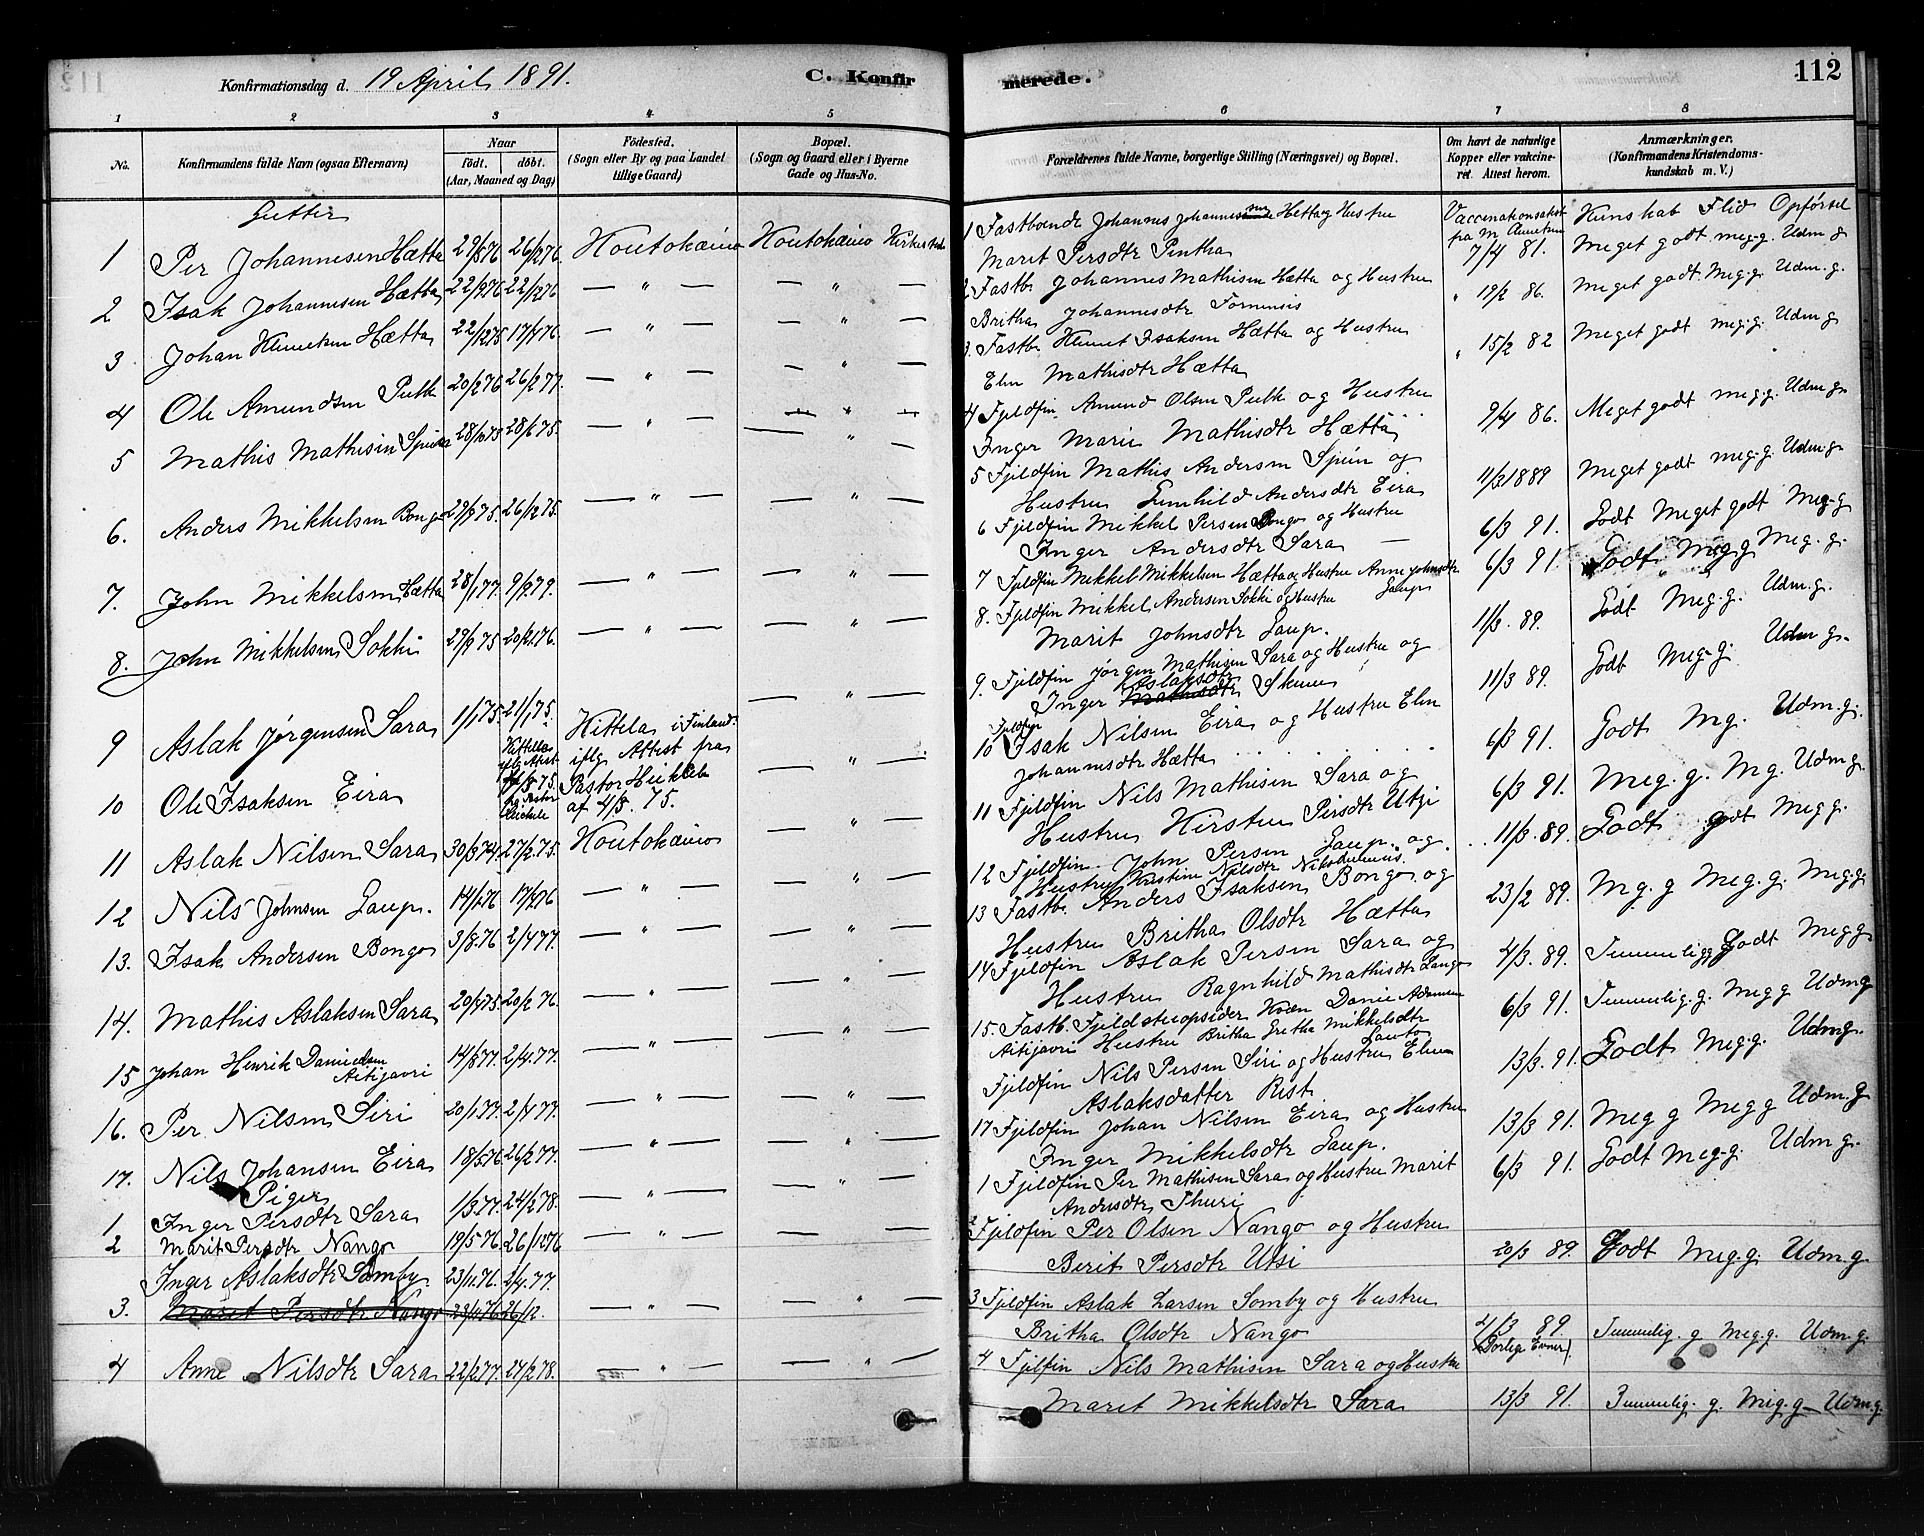 Konfirmationsdag d. 19 April 1891. C. Konfirmerede. 112
1 2 3 4 5 6 7 8
No. Konfirmandens fulde Navn (ogsaa Efternavn) Naar født. døbt. (Aar, Maaned og Dag) Födested. (Sogn eller By og paa Landet tillige Gaard) Bopæl. (Sogn og Gaard eller i Byerne Gade og Hus-No.
Forældrenes fulde Navne, borgerlige Stilling (Næringsvei) og Bopæl. Om havt de naturlige Kopper eller vakcineret. Attest herom. Anmærkninger. (Konfirmandens Kristendomskundskab m. V.)
Gutter
1 Per Johannesen Hætta 29/8 76 26/12 76. Koutokæino Koutokæino Kirkested
2 Isak Johannesen Hætta 22/9 76 22/12 76
3 Johan Klemetsen Hætta 22/12 75 17/4 76
4 Ole Amundsen Pulk 20/12 76 26/2 77.
5 Mathis Mathisen Spein 28/6 75.
6. Anders Mikkelsen Bongo 26/12 75.
7. John Mikkelsen Hætta 28/1 77. 9/2 79.
8. John Mikkelsen Sokki 29/9 75 20/2 76.
9 Aslak Jørgensen Sara 1/1 75. 21/1 75.
10 Ole Isaksen Eira Kittela i Finland iflg. Attest fra Pastor Heikel af 4/8. 75.
11 Aslak Nilsen Sara 30/3 74 27/2 75. Koutokæino
12 Nils Johnsen Gaup. 14/1 76 17/2 76
13. Isak Andersen Bongo 3/8. 76 2/4 77.
14. Mathis Aslaksen Sara 20/2 76.
15 Johan Henrik Danielsen Aitijavri 2/4. 77.
16. Per Nilsen Siri 20/1 77. 2/4 77.
17. Nils Johansen Eira 18/5 76 26/2 77.
Piger
1 Inger Persdtr Sara 1/3 77. 24/2 78.
2 Marit Persdtr Nango 19/5 76. 26/12 76
Inger Aslaksdtr Somby 23/11 76. 2/4 77.
3. Maret Persdtr Nango
4 Anne Nilsdtr Sara 22/2 77. 24/2 78.
1 Fastboende Johannes Johannessen Hætta og Hustru Vaccenationsattest Kunskab Flid Opførsel
Maret Persdtr Pentha 7/4 81. Meget godt meg-g. Udm g
2 Fastb. Johannes Mathisen Hætta og Hustru
Britha Johannesdtr " 19/2 86. Meget godt meg. g. Udm. g.
3. Fastb. Klemet Isaksen Hætta og Hustru
Elen Mathisdtr Hætta " 15/2 82 Meget godt meg. g. Udm g
4 Fjeldfin Amund Olsen Pulk og Hustru
Inger Marie Mathisdtr Hætta 9/4 86. Meget godt meg. g. Udm g.
5 Fjeldfin Mathis Andersen Spein og
Hustru Gunhild Andersdtr Eira 11/3 1889 Meget godt meg. g. Udm g.
6 Fjeldfin Mikkel Persen Bongo og Hustru
Inger Andersdtr Sara 6/3 91. Godt Meget godt Meg-g
7 Fjeldfin Mikkel Mikkelsen Hætta og Hustru Anne Johnsdtr Gaup 6/3 91. Godt Meg g Meg. g.
8. Fjeldfin Mikkel Andersen Sokki og Hustru
Marit Johnsdtr Gaup. 11/3. 89. Godt Meg. g. Udm. g.
9. Fjeldfin Jørgen Mathisen Sara og Hustru og
Inger Aslaksdtr 11/3 89. Godt Meg. g. Udm g.
10 Fjeldfin Isak Nilsen Eira og Hustru Elen
Johannesdtr Hætta 6/3 91. Godt Mg. Udm. g.
11 Fjeldfin Nils Mathisen Sara og
Hustru Kirsten Persdtr Utsi 6/3 91. Meg. g. Mg. Udm g.
12 Fjeldfin. John Persen Gaup. og
Hustru Kristine Nilsdtr 11/3. 89. Godt godt Meg g.
13 Fastb. Anders Isaksen Bongo og
Hustru Britha Olsdtr Hætta 23/2 89. Mg. g Meg. g. Meg. g.
14 Fjeldfin Aslak Persen Sara og
Hustru Ragnhild Mathisdtr 4/3. 89. Temmelig g Godt Meg g
15 Fastb. Fjeldstueopsidder
Aitijavri Hustru Britha Gretha Mikkelsdtr 6/3 91. Temmelig. g. Meg g Udm g
Fjeldfin Nils Persen Siri og Hustru Elen
Aslaksdatter Rist 13/3. 91. Godt Meg. g. Udm g.
17 Fjeldfin Johan Nilsen Eira og Hustru
Inger Mikkelsdtr Gaup. 13/3 91. Meg g Meg g Udm. g
1 Fjeldfin Per Mathisen Sara og Hustru Marit
Andersdtr Thuri 6/3 91. Godt Meg. g. Udm g.
2 Fjeldfin Per Olsen Nango og Hustru
Berit Persdtr Utsi 20/3 89. Godt Meg. g. Udm. g
3 Fjeldfin Aslak Larsen Somby og Hustru
Britha Olsdtr Nango 4/3 89. (Dorlige Evner). Temmelig. g Meg. g. Udm. g.
4 Fjelfin Nils Mathisen Sara og Hustru
Maret Mikkelsdtr Sara 13/3 91. Temmelig. g. Meg. g Udm. g.